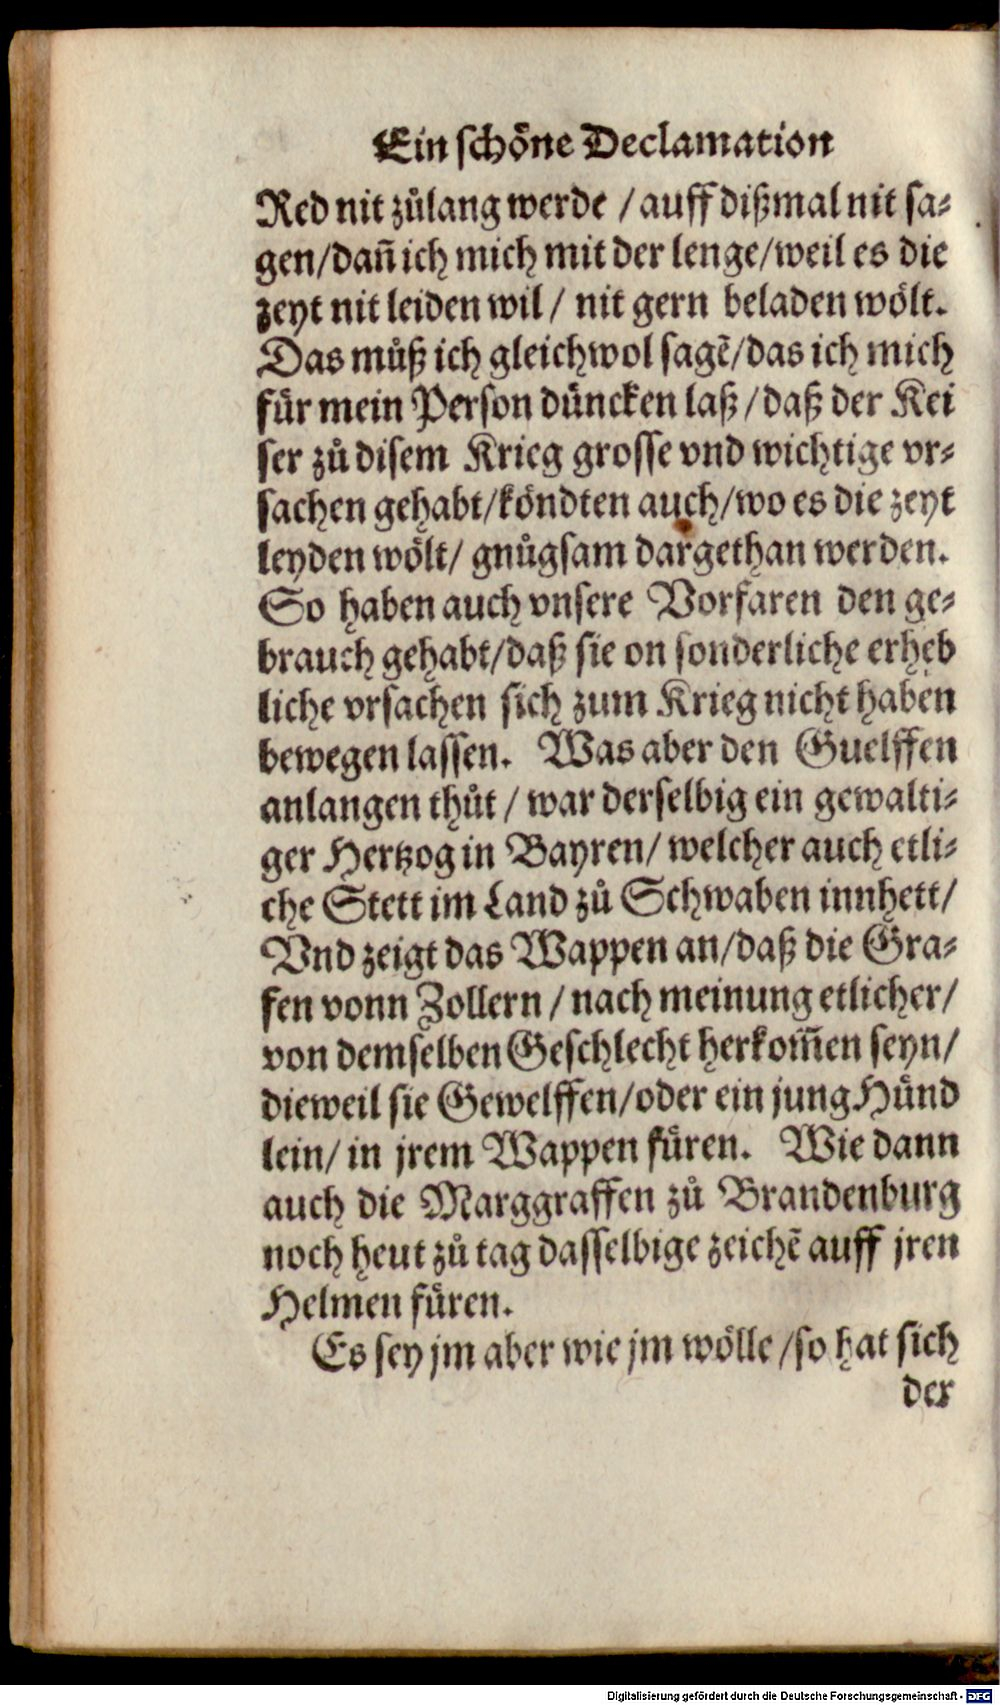 Ein schöne Declamation
Red nit zůlang werde / auff dißmal nit sa⸗
gen/dañ ich mich mit der lenge/weil es die
zeyt nit leiden wil / nit gern beladen wölt.
Das můß ich gleichwol sagẽ/das ich mich
für mein Person düncken laß/daß der Kei
ser zů disem Krieg grosse vnd wichtige vr⸗
sachen gehabt/köndten auch/wo es die zeyt
leyden wölt/ gnůgsam dargethan werden.
So haben auch vnsere Vorfaren den ge⸗
brauch gehabt/daß sie on sonderliche erheb
liche vrsachen sich zum Krieg nicht haben
bewegen lassen. Was aber den Guelffen
anlangen thůt / war derselbig ein gewalti⸗
ger Hertzog in Bayren/ welcher auch etli⸗
che Stett im Land zů Schwaben innhett/
Vnd zeigt das Wappen an/daß die Gra⸗
fen vonn Zollern / nach meinung etlicher/
von demselben Geschlecht herkom̃en seyn/
dieweil sie Gewelffen/oder ein jung Hünd
lein/ in jrem Wappen füren. Wie dann
auch die Marggraffen zů Brandenburg
noch heut zů tag dasselbige zeichẽ auff jren
Helmen füren.
Es sey jm aber wie jm wölle /so hat sich
der
Digitalisierung gefördert durch die Deutsche Forschungsgemeinschaft - DFG